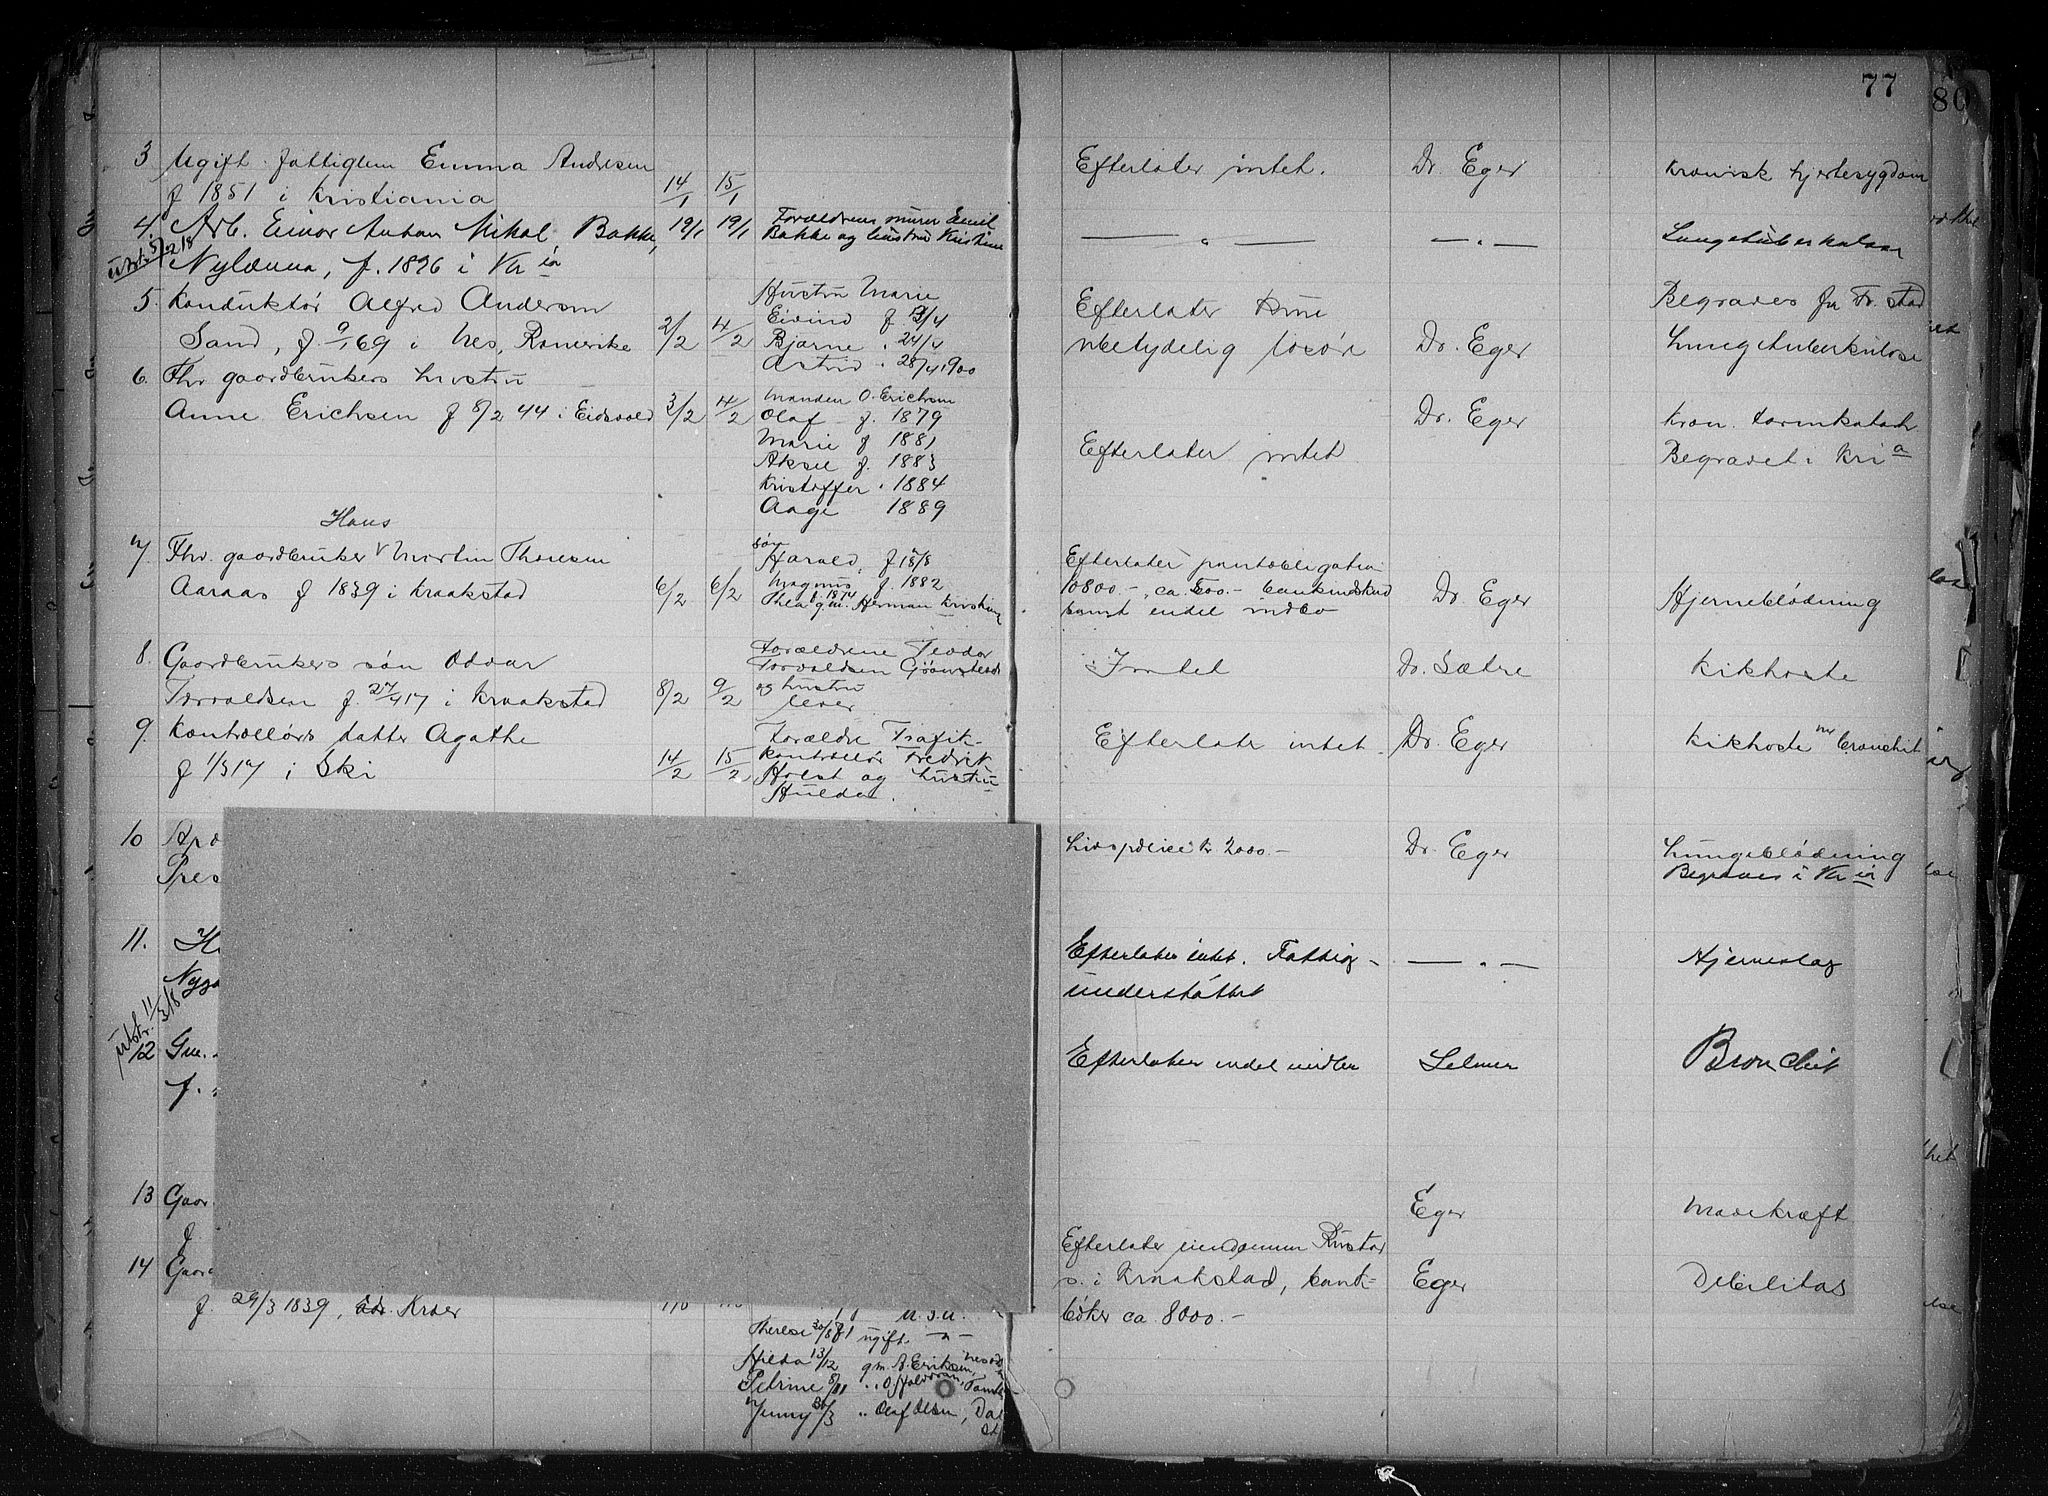 77
80
3 Ugift fattiglem Emma Andresen
f 1851 i Kristiania
14/1 15/1
Efterlater intet. Dr. Eger Kronisk hjertesygdom
4. Arb. Einar Anton Mikal Bakke,
Nylænna, f. 1896 i Kr ia
19/1 19/1
Forældrene murer Emil
Bakke og hustru Kristine
— " — — " — Lungetuberkulose
5. Konduktør Alfred Andersen
Sand, f 9/1 69 i Nes, Romerike
2/2 4/2
Hustru Marie
Eivind f 13/4
Bjarne " 24/4
Astrid " 28/4 1900
Efterlater kun
ubetydelig løsøre Dr. Eger
Begraves fra Fr.stad
Lungetuberkulose
6. Fhv gaardbrukers hustru
Anne Erichsen f 8/2 44 i Eidsvold
3/2 4/2
Manden O. Erichsen
Olaf f. 1879
Marie f 1881
Aksel f. 1883
Kristoffer " 1884
Aage 1889
Efterlater intet
Dr. Eger
kron. tarmkatarh
Begravet i Kri a
7 Fhv. gaardbruker Hans Martin Thoresen
Aaraas f 1839 i Kraakstad
6/2 6/2
søn
Harald, f 1878
Magnus f. 1882
Thea f. 1874 g.m. Herman Kristians
Efterlater pantobligation
10800.-, ca. 500.- bankindskud
samt endel indbo
Dr. Eger Hjerneblødning
8. Gaardbrukers søn Odvar
Torvaldsen f. 27/4 17 i Kraakstad
8/2 9/2
Forældrene Teodor
Torvaldsen
og hustru
lever
Intet Dr. Sætre Kikhoste
9. Kontrollørs datter Agathe
f 1/3 17 i Ski
14/2 15/2
Forældre Trafik-
kontrollør Fredrik
Holst og hustru
Hulda.
Efterlater intet. Dr. Eger Kikhoste m/ bronchit
10 Ap
Pres
Livspolice kr 2000.- Dr. Eger
Lungeblødning
Begraves i Kr ia
11. H
Nyga
Efterlater intet. Fattig-
understøttet
— " — Hjerneslag
12 Gm.
f.
Efterlater endel midler Selmer Bronchit
13 Gaar
f.
Eger Mavekræft
14 Gaar
f. 29/3 1839, Kraer
Efterlater eiendommen
i Kraakstad, bank-
bøker ca 8000.-
Eger Debilitas
U.S.A.
Therese 30/8 71 ugift — " —
Hilda 13/12 g.m. A. Eriksen, Nesod
Petrine 8/11 " O. Halvorsen,
Jenny 30/3 " Olaf Olsen, Dal